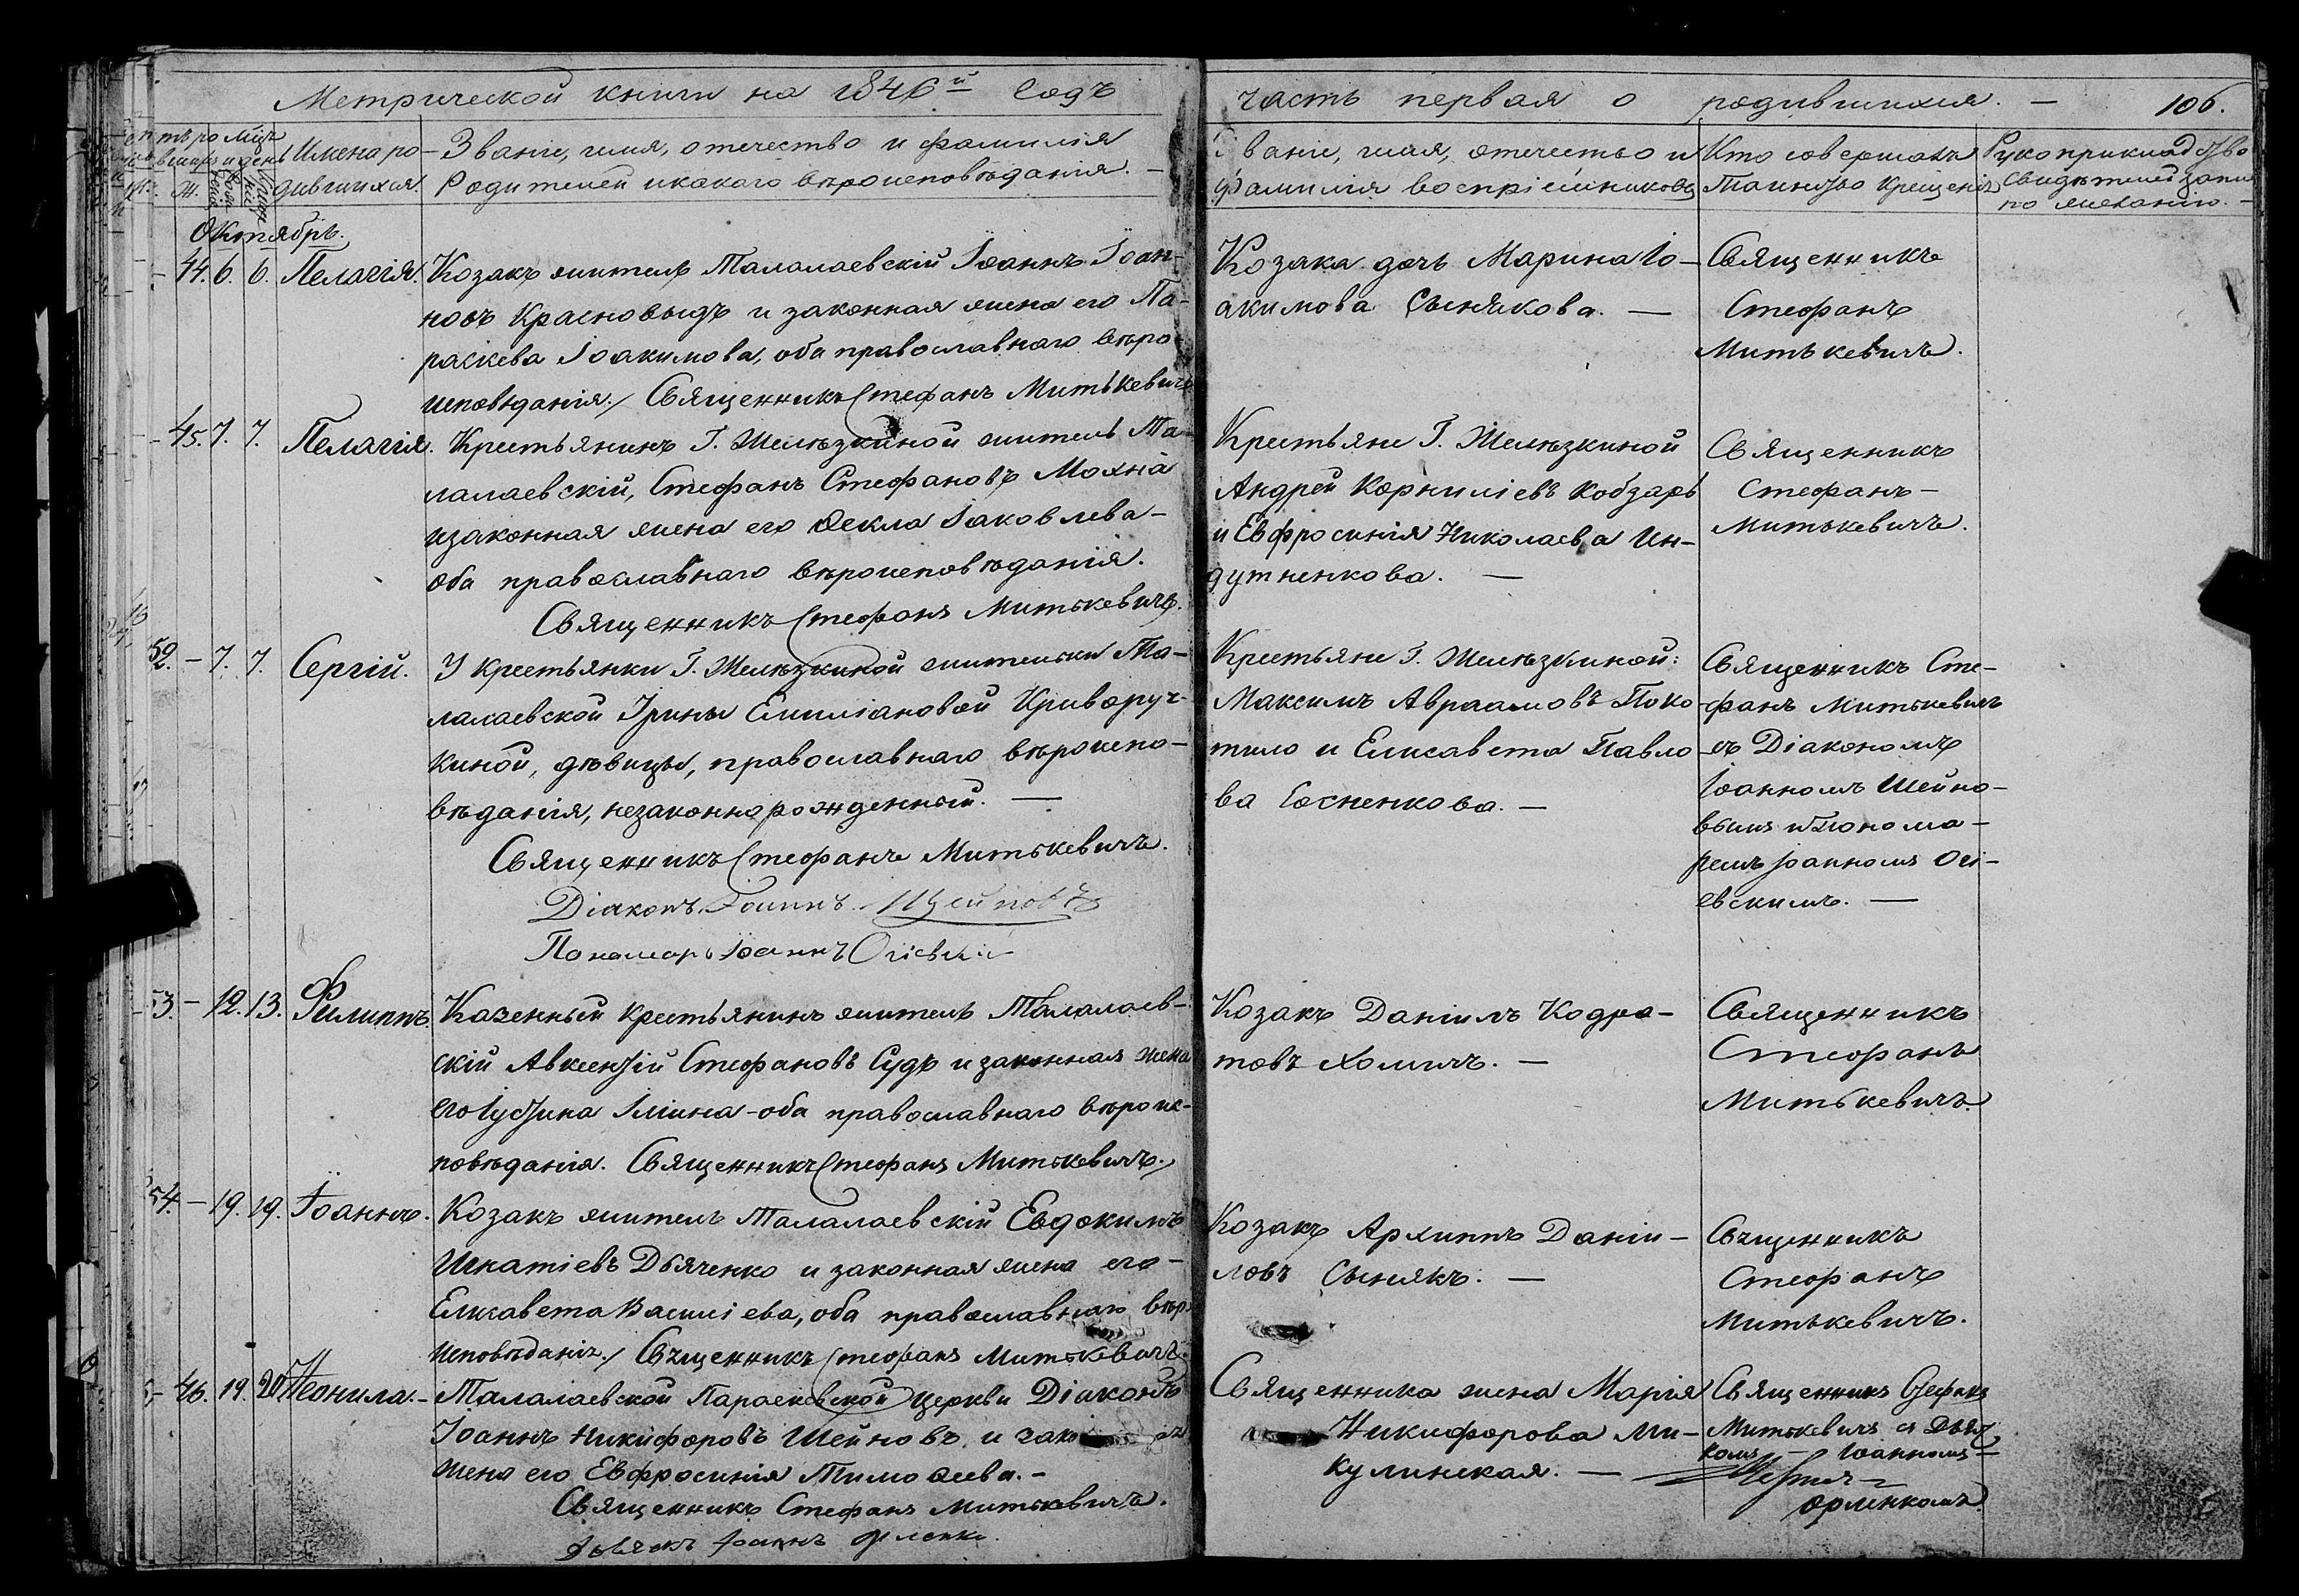 Метрической книги на 1846й годъ
часть первая о родившихся. — 106.
Имена ро-
дившихся.
Званіе, имя, отечество и фамилія
Родителей и какого вѣроисповѣданія. —
Званіе, имя, отечество и
фамилія воспріемниковъ
Кто совершалъ
Таинство крещенія
Рукоприкладство
свидѣтелей записи
по желанію. —
Октябрь.
- 44. 6. 6. Пелагія.
Козакъ житель Талалаевскій Іоаннъ Іоан-
новъ Красновыдъ и законная жена его Па-
раскева Іоакимова, оба православнаго вѣро
исповѣданія. / Священникъ Стефанъ Митькевичъ
Козака дочь Марина Іо-
акимова Сынякова. —
Священникъ
Стефанъ
Митькевичъ.
- 45. 7. 7. Пелагія.
Крестьянинъ Г. Желѣзкиной житель Та-
лалаевскій, Стефанъ Стефановъ Мохна
и законная жена его Ѳекла Іаковлева -
оба православнаго вѣроисповѣданія.
Священникъ Стефанъ Митькевичъ.
Крестьяне Г. Желѣзкиной
Андрей Корниліевъ Кобзарь
и Евфросинія Николаева Ин-
дутненкова. —
Священникъ
Стефанъ -
Митькевичъ.
52. - 7. 7. Сергій.
У крестьянки Г. Желѣзкиной жительки Та-
лалаевской Ірины Емиліановой Криворуч-
киной, дѣвицы, православнаго вѣроиспо-
вѣданія, незаконнорожденный. —
Священникъ Стефанъ Митькевичъ.
Діаконъ Іоаннъ Шейновъ
Пономарь Іоаннъ Огіевскій
Крестьяне Г. Желѣзкиной:
Максимъ Авраамовъ Поко
тило и Елисавета Павло
ва Еосненкова. —
Священникъ Сте-
фанъ Митькевичъ
съ Діакономъ
Іоанномъ Шейно-
вымъ и Понома-
ремъ Іоанномъ Огі-
евскимъ. —
53. - 12. 13. Филиппъ.
Казенный крестьянинъ житель Талалаев-
скій Авксентій Стефановъ Судъ и законная жена
его Іустина Іліина - оба православнаго вѣроис-
повѣданія. Священникъ Стефанъ Митькевичъ.
Козакъ Даніилъ Кодра-
товъ Хомичъ. —
Священникъ
Стефанъ
Митькевичъ.
54. - 19. 19. Іоаннъ.
Козакъ житель Талалаевскій Евдокимъ
Игнатіевъ Дьяченко и законная жена его -
Елисавета Василіева, оба православнаго вѣро
исповѣданія. / Священникъ Стефанъ Митькевичъ.
Козакъ Архиппъ Даніи-
ловъ Сынякъ. —
Священникъ
Стефанъ
Митькевичъ.
- 46. 19. 20. Неонила. -
Талалаевской Параскевской церкви Діаконъ
Іоаннъ Никифоровъ Шейновъ и
жена его Евфросинія Тимоѳеева. -
Священникъ Стефанъ Митькевичъ.
Дьячекъ Іоаннъ
Священника жена Марія
Никифорова Ми-
кулинская. —
Священникъ Стефанъ
Митькевичъ съ Дьяч
комъ - Іоанномъ -
орленкомъ.